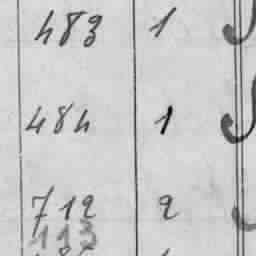 483 1
484 1
712 2
113